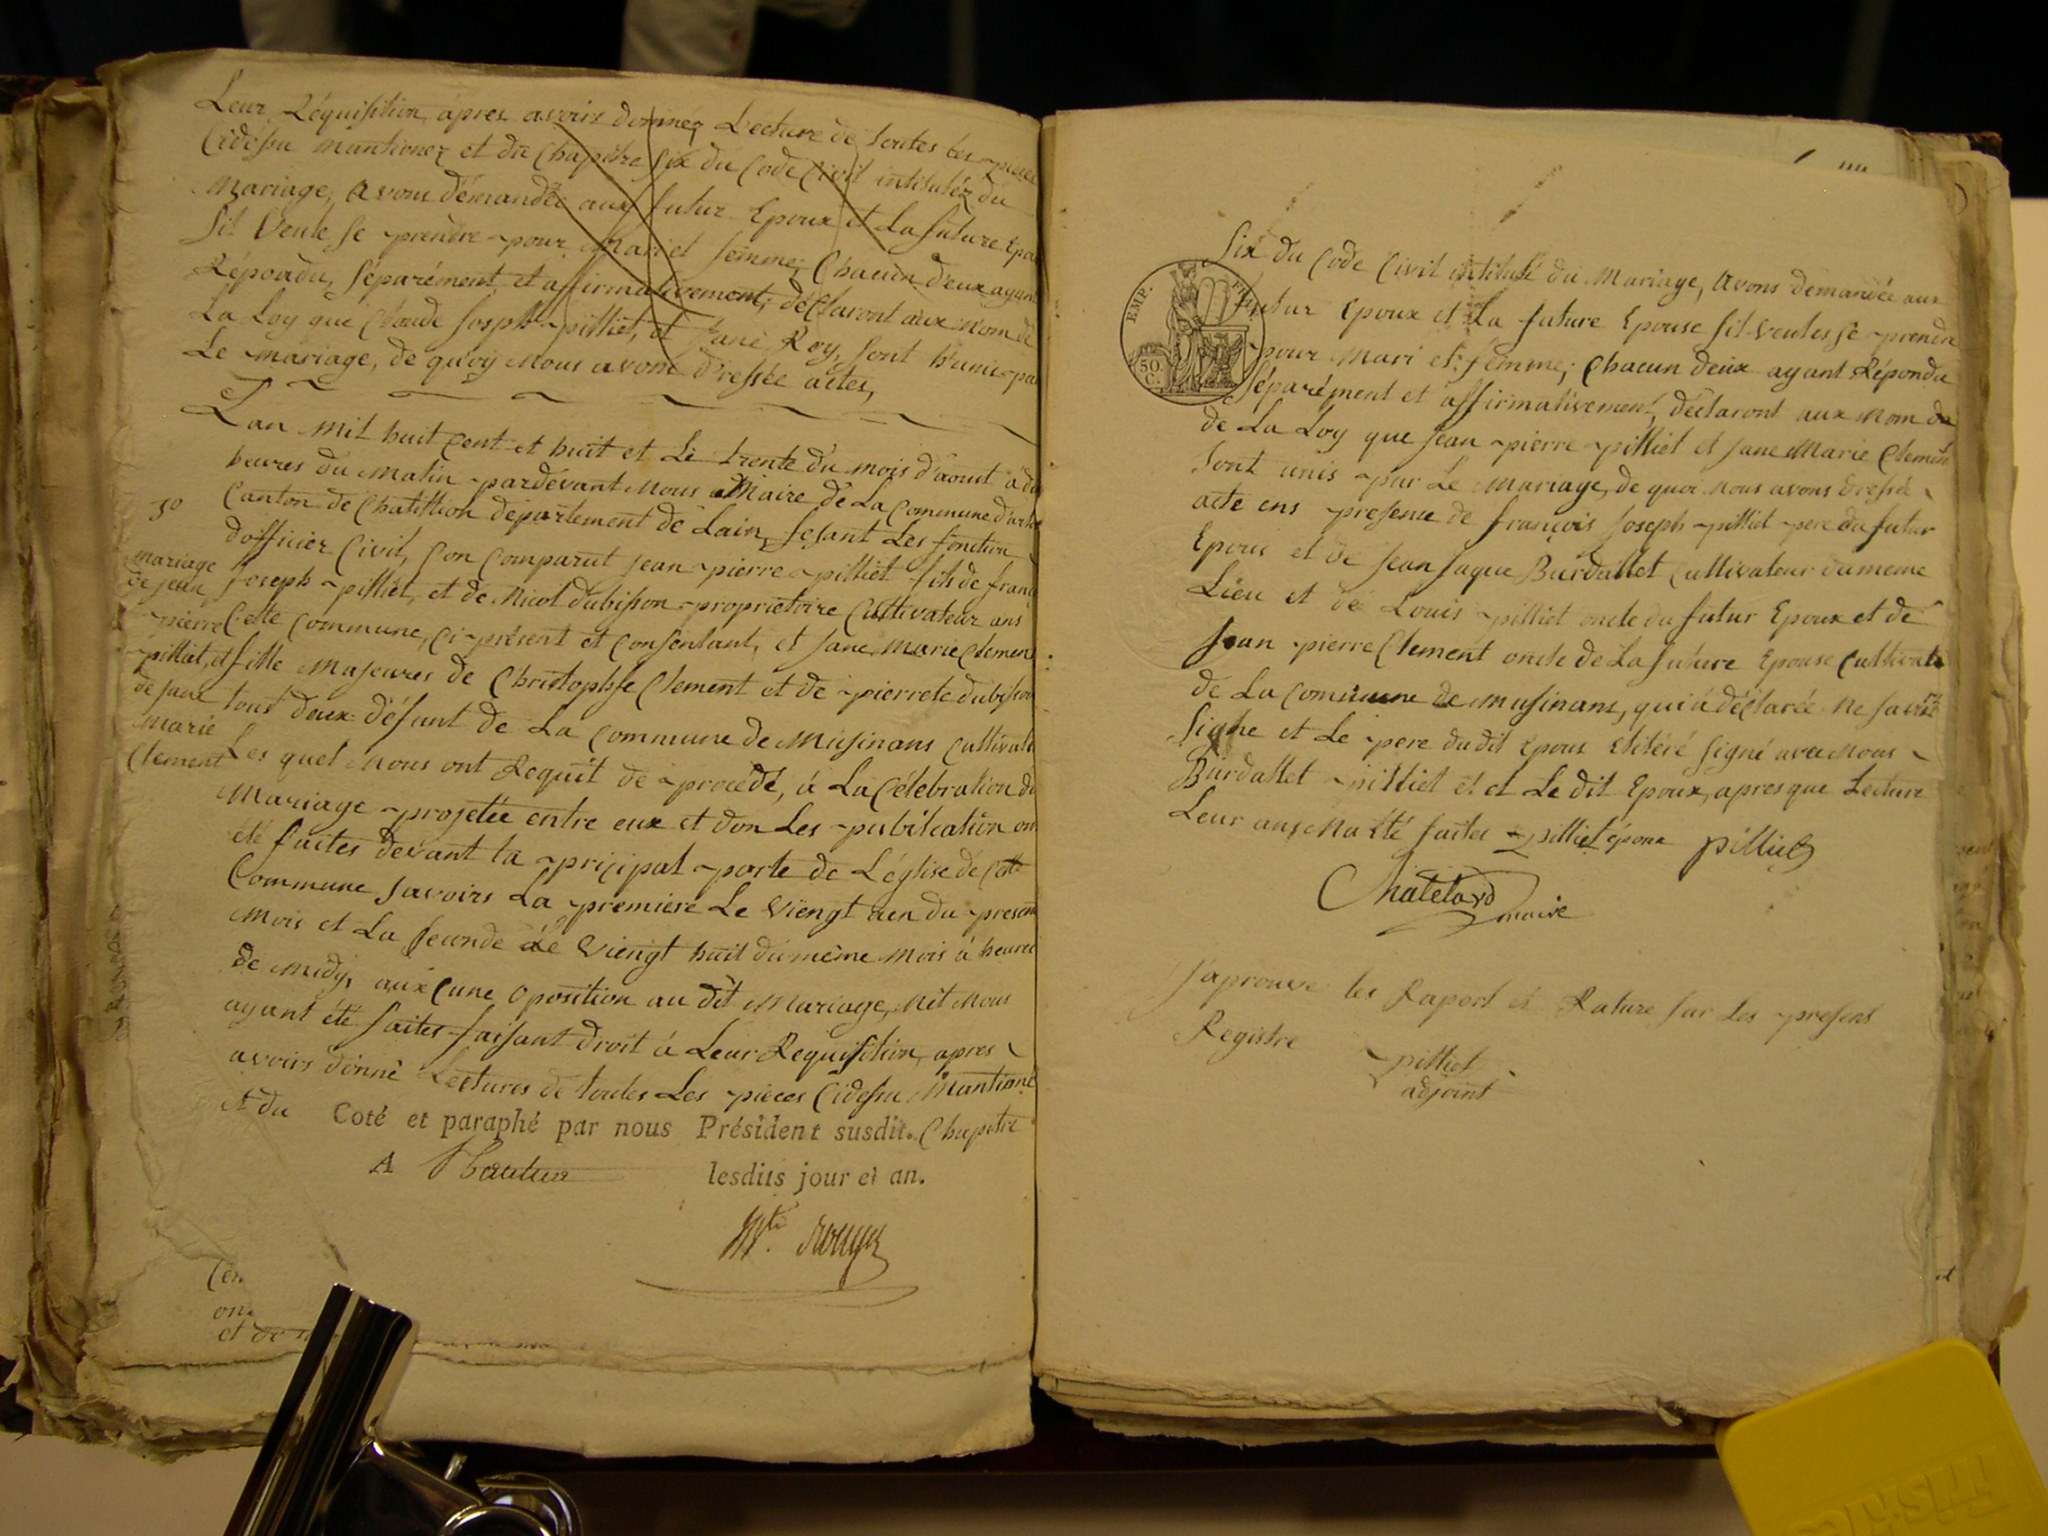 Leur Réquisition, apres avoir donnéz Lecture de toutes les pieces
Cidessu mantionez et du Chapitre Six du Code Civil intituléz du
Mariage, avons démandéz aux futur Epoux et La future Epou
Sil veule se prendre pour Mari et femme, Chacun d'eux ayant
Répondu, séparément et affirmativement, déclaront aux Nom de
La Loy que Claude Joseph pilliet, et Jane Roy, sont hunis par
Le mariage, de quoÿ Nous avons Dressée actes,
Lan mil huit Cent et huit et Le trente du mois d'aout à di
heures du Matin pardevant Nous Maire de La Commune d'arlod
Canton de Chatillion département de Lain, fesant Les fonction
d'officier Civil, Son Comparut Jean pierre pilliet fils de franc
Joseph pilliet, et de Nicol dubisson proprietoire Cultivateur ans
Cette Commune, ci présent et Consentant, et Jane Marie Clemen
fille Majeures de Christophe Clement et de pierrete dubisson
tout deux défunt de La Commune de Musinans Cultivate
Les quel Nous ont Requit de procédé, à La Célébration du
Mariage projetée entre eux et don Les publication on
été faites devant la pricipal porte de L'église de Cette
Commune Savoirs La premiere Le viengt aen du present
Mois et La seconde Le viengt huit du même Mois à heures
de midy, aux Cune oposition au dit Mariage, Nêt Nous
ayant été faites faisant droit à Leur Requisition, apres
avoirs donné Lectures de toutes Les pieces Cidessu Mantioné
et du Chapitre
50
mariage
de jean
pierre
pilliet, et
de jane
Marie
Clement
Coté et paraphé par nous Président susdit.
A Nantua lesdits jour et an.
Rouyer
on
et de
EMP.
50
C.
Six du Code Civil intitulé du Mariage, avons demandée aux
futur Epoux et La future Epouse sil veules se prendre
pour Mari et femme; Chacun deux ayant Répondu
Séparément et affirmativement, déclaront aux Nom de
de La Loy que Jean pierre pilliet et Jane Marie Clemen
Sont unis par Le Mariage, de quoi Nous avons dressée
acte ens presense de françois Joseph pilliet pere du futur
Epous et de Jean Jaque Burdallet Cultivateur dumeme
Lieu et de Louis pilliet oncle du futur Epoux et de
Jean pierre Clement oncle de La future Epouse Cultivate
de La Commune de Musinans, qui à déclarée Ne savoir
Signe et Le pere du dit Epous Etitéré signé avec Nous
Burdallet pilliet et et Le dit Epoux, apres que Lecture
Leur ans Na été faites pilliet époux pilliet
Chatelard
maire
J'aprouve les Raport et Rature sur Les presens
Registre
pilliet
adjoint